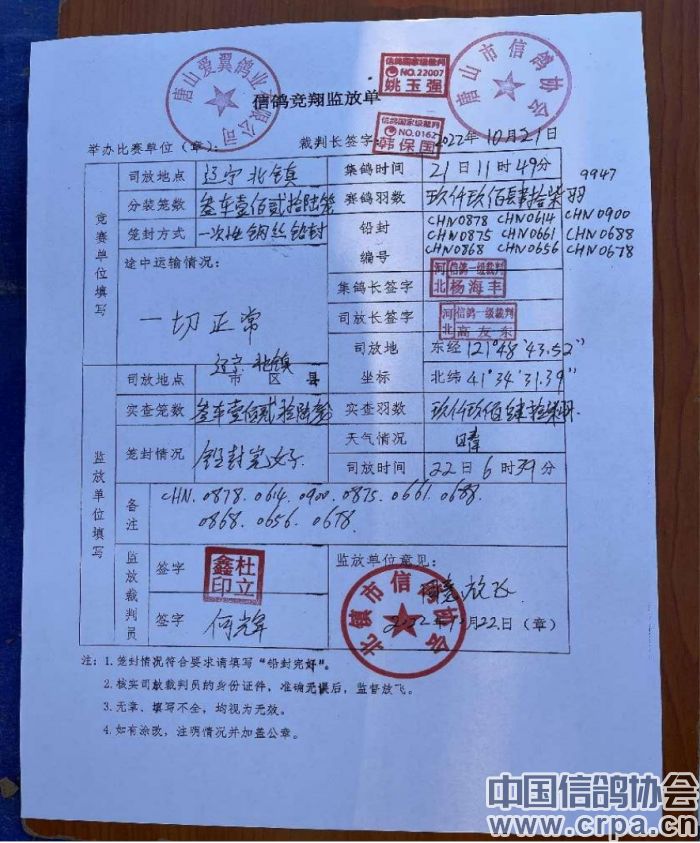 唐山爱翼鸽业有限公司
信鸽国家级裁判
NO.22007
姚玉强
唐山市信鸽协会
信鸽竞翔监放单
信鸽国家级裁判
NO.0162
韩保国
举办比赛单位（章）：
裁判长签字：
2022年10月21日
竞赛单位填写
司放地点 辽宁北镇 集鸽时间 21日11时49分
9947
分装笼数 叁车壹佰贰拾陆笼 赛鸽羽数 玖仟玖佰肆拾柒羽
笼封方式 一次性钢丝铅封 铅封编号
CHN0878 CHN0614 CHN0900
CHN0875 CHN0661 CHN0688
CHN0868 CHN0656 CHN0678
途中运输情况：
一切正常
集鸽长签字 河北 信鸽一级裁判 杨海丰
司放长签字 河北 信鸽一级裁判 高友东
司放地坐标 东经121°48′43.52″
北纬41°34′31.39″
监放单位填写
司放地点 辽宁 北镇 市 区 县
实查笼数 叁车壹佰贰拾陆笼 实查羽数 玖仟玖佰肆拾柒羽
笼封情况 铅封完好 天气情况 晴
司放时间 22日6时39分
备注 CHN.0878.0614.0900.0875.0661.0688.
0868.0656.0678
监放裁判员
签字 杜立鑫印
签字 何光辉
监放单位意见：
同意放飞
2022年10月22日（章）
北镇市信鸽协会
注：1.笼封情况符合要求请填写“铅封完好”。
2.核实司放裁判员的身份证件，准确无误后，监督放飞。
3.无章、填写不全，均视为无效。
4.如有涂改，注明情况并加盖公章。
中国信鸽协会
www.crpa.cn